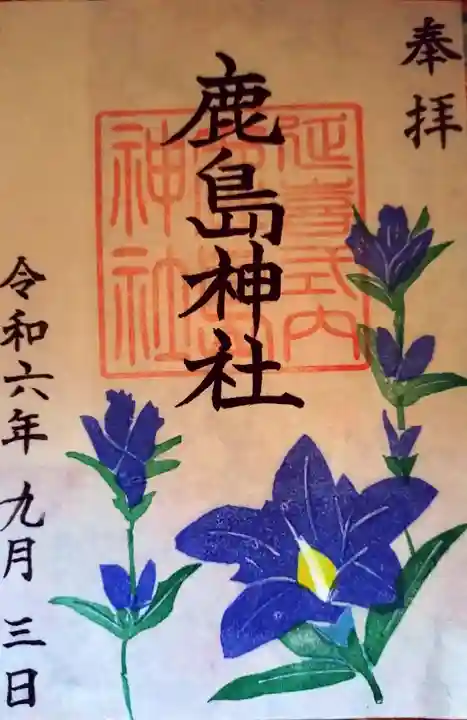 奉拝
延喜式内
鹿島神社
神社
令和六年 九月 三日